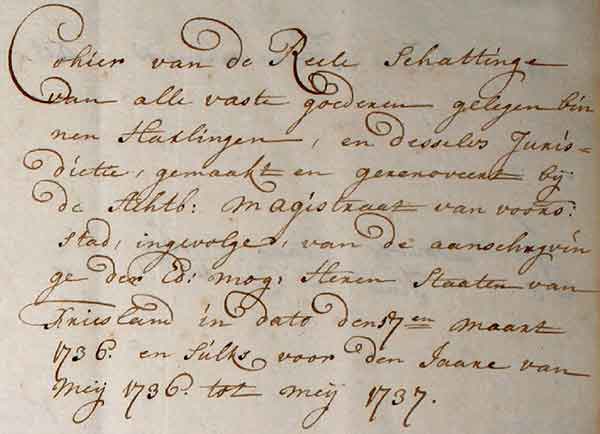 Cohier van de Reele Schattinge
van alle vaste goederen gelegen bin
nen Harlingen, en desselvs Juris=
dictie, gemaakt en gerenoveert bij
de Achtb: magistraat van voors:
stad, ingevolge, van de aanschryvin
ge der Ed: mog: Heren Staaten van
Friesland in dato den 17en maart
1736. en sulks voor den Jaare van
Meij 1736. tot meij 1737.